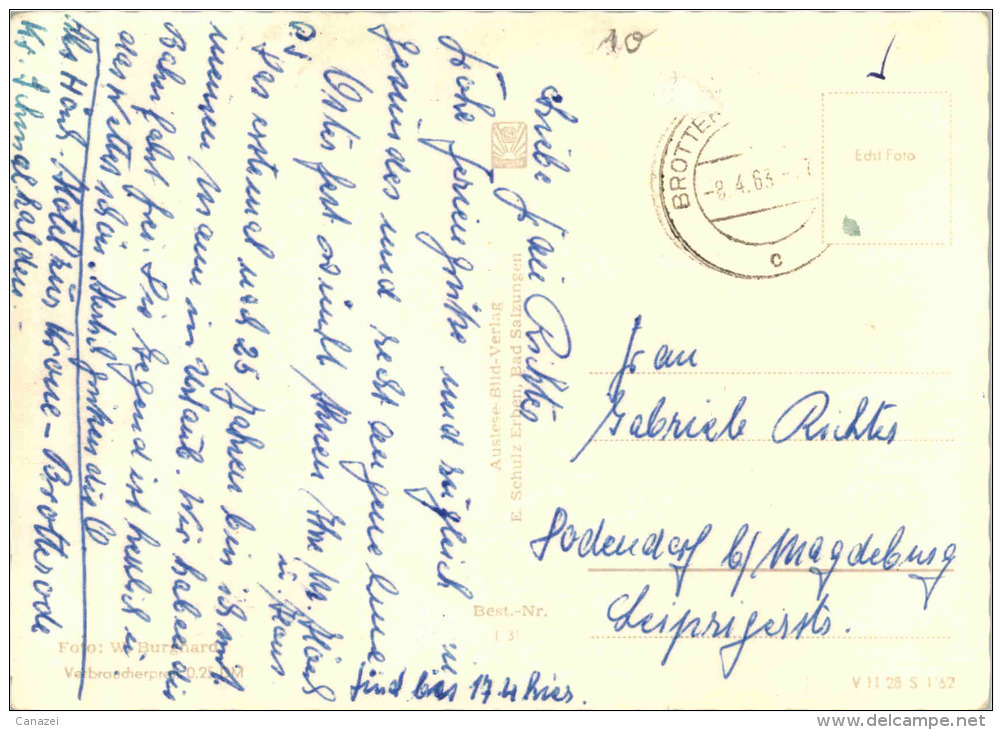 10
Liebe Frau Richter
Frohe Feriengrüße und zugleich
gesundes und recht angenehmes
Osterfest wünscht Ihnen Ihre M. Hönd
u. Haus
Das erstemal nach 25 Jahren bin ich mit
meinem Mann in Urlaub. Wir haben die
Bahnfahrt frei. Die Gegend ist herrlich
das Wetter schön.
Hotel zur Krone - Brotterode
Kr. Schmalkalden.
Sind bis 17.4 hier.
Auslese-Bild-Verlag
E. Schulz Erben, Bad Salzungen
Best.-Nr.
I 31
Foto: W. Burghardt
Verbraucherpreis 0.25 DM
BROTTER
-8.4.63
c
Echt Foto
Frau
Gabriele Richter
Hodendorf b/Magdeburg
Leipzigerstr.
V 11 28 S 1 62
Canazei
www.delcampe.net